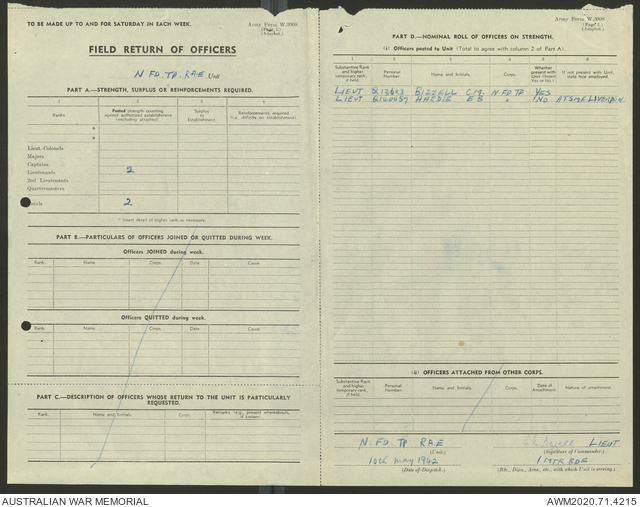 TO BE MADE UP TO AND FOR SATURDAY IN EACH WEEK.
Army Form W.3008
(Page 1.)
(Adapted.)
FIELD RETURN OF OFFICERS
N FD. TP. RAE Unit
PART A.—STRENGTH, SURPLUS OR REINFORCEMENTS REQUIRED.
1 2 3 4
Ranks. Posted strength counting against authorized establishment (excluding attached) Surplus to Establishment. Reinforcements required (i.e. deficits on Establishment)
*
*
Lieut.-Colonels
Majors
Captains
Lieutenants 2
2nd Lieutenants
Quartermasters
Totals 2
* Insert detail of higher rank as necessary.
PART B.—PARTICULARS OF OFFICERS JOINED OR QUITTED DURING WEEK.
Officers JOINED during week.
Rank. Name. Corps. Date. Cause.
Officers QUITTED during week.
Rank. Name. Corps. Date. Cause.
PART C.—DESCRIPTION OF OFFICERS WHOSE RETURN TO THE UNIT IS PARTICULARLY REQUESTED.
Rank. Name and Initials. Corps. Remarks (e.g., present whereabouts, if known).
Army Form W.3008
(Page 2.)
(Adapted.)
PART D.—NOMINAL ROLL OF OFFICERS ON STRENGTH.
(i) Officers posted to Unit (Total to agree with column 2 of Part A).
1 2 3 4 5 6
Substantive Rank and higher temporary rank, if held. Personal Number. Name and Initials. Corps. Whether present with Unit (Insert Yes or No.) If not present with Unit, state how employed.
LIEUT BIZZELL C.M. N FD. TP YES
LIEUT HARDIE E B " NO
(ii) OFFICERS ATTACHED FROM OTHER CORPS.
Substantive Rank and higher temporary rank, if held. Personal Number. Name and Initials. Corps. Date of Attachment. Nature of attachment.
N. FD. TP RAE
(Unit.)
LIEUT
(Signature of Commander.)
16th May 1942
(Date of Despatch.)
1 MTR BDE
(Bde., Divn., Area, etc., with which Unit is serving.)
AUSTRALIAN WAR MEMORIAL
AWM2020.71.4215